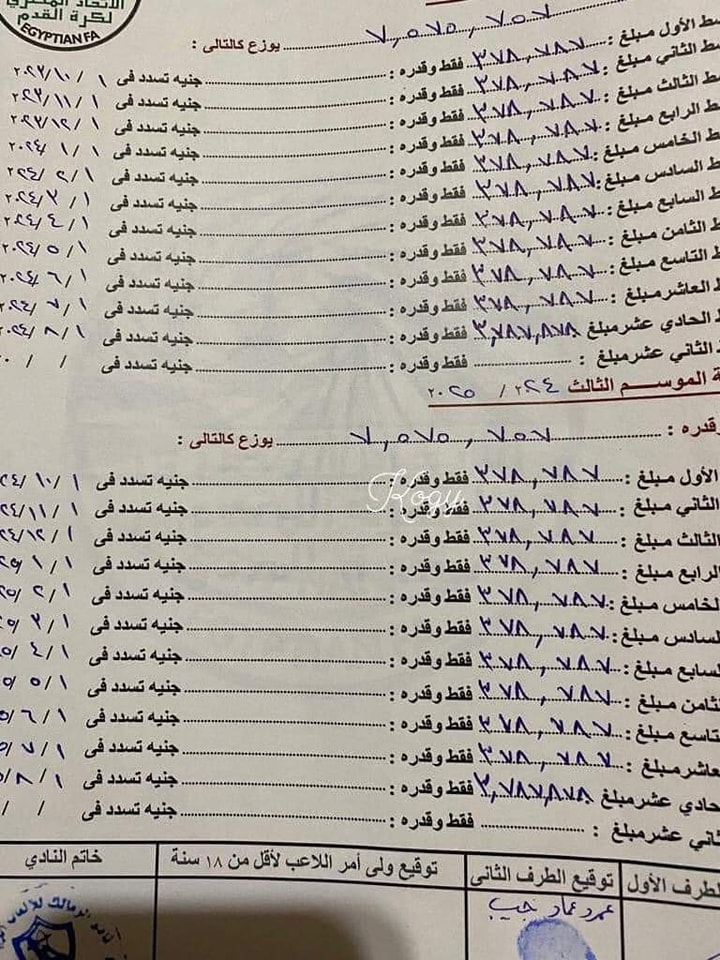 الاتحاد المصري
لكرة القدم
EGYPTIAN FA
٧,٥٧٥,٧٥٧ يوزع كالتالى :
سط الأول مبلغ : ٣٧٨,٧٨٧ فقط وقدره : جنيه تسدد فى ١ /٢٠٢٣/١٠
سط الثاني مبلغ : ٣٧٨,٧٨٧ فقط وقدره : جنيه تسدد فى ١ /٢٠٢٣/١١
ط الثالث مبلغ : ٣٧٨,٧٨٧ فقط وقدره : جنيه تسدد فى ١ /٢٠٢٣/١٢
ط الرابع مبلغ : ٣٧٨,٧٨٧ فقط وقدره : جنيه تسدد فى ١ / ١ /٢٠٢٤
ط الخامس مبلغ : ٣٧٨,٧٨٧ فقط وقدره : جنيه تسدد فى ١ / ٢ /٢٠٢٤
ط السادس مبلغ : ٣٧٨,٧٨٧ فقط وقدره : جنيه تسدد فى ١ / ٣ /٢٠٢٤
ط السابع مبلغ : ٣٧٨,٧٨٧ فقط وقدره : جنيه تسدد فى ١ / ٤ /٢٠٢٤
ط الثامن مبلغ : ٣٧٨,٧٨٧ فقط وقدره : جنيه تسدد فى ١ / ٥ /٢٠٢٤
ط التاسع مبلغ : ٣٧٨,٧٨٧ فقط وقدره : جنيه تسدد فى ١ / ٦ /٢٠٢٤
ط العاشر مبلغ : ٣٧٨,٧٨٧ فقط وقدره : جنيه تسدد فى ١ / ٧ /٢٠٢٤
ط الحادي عشر مبلغ ٣,٧٨٧,٨٧٨ فقط وقدره : جنيه تسدد فى ١ / ٨ /٢٠٢٤
ط الثاني عشر مبلغ : فقط وقدره : جنيه تسدد فى / / ٢٠
ة الموســم الثالث ٢٠٢٤ / ٢٠٢٥
وقدره : ٧,٥٧٥,٧٥٧ يوزع كالتالى :
الأول مبلغ : ٣٧٨,٧٨٧ فقط وقدره : جنيه تسدد فى ١ /١٠ /٢٤
الثاني مبلغ : ٣٧٨,٧٨٧ فقط وقدره : جنيه تسدد فى ١ /١١ /٢٤
الثالث مبلغ : ٣٧٨,٧٨٧ فقط وقدره : جنيه تسدد فى ١ /١٢ /٢٤
الرابع مبلغ : ٣٧٨,٧٨٧ فقط وقدره : جنيه تسدد فى ١ / ١ /٢٥
لخامس مبلغ : ٣٧٨,٧٨٧ فقط وقدره : جنيه تسدد فى ١ / ٢ /٢٥
لسادس مبلغ : ٣٧٨,٧٨٧ فقط وقدره : جنيه تسدد فى ١ / ٣ /٢٥
لسابع مبلغ : ٣٧٨,٧٨٧ فقط وقدره : جنيه تسدد فى ١ / ٤ /٢٥
ثامن مبلغ : ٣٧٨,٧٨٧ فقط وقدره : جنيه تسدد فى ١ / ٥ /٥
تاسع مبلغ : ٣٧٨,٧٨٧ فقط وقدره : جنيه تسدد فى ١ / ٦ /٥
عاشر مبلغ : ٣٧٨,٧٨٧ فقط وقدره : جنيه تسدد فى ١ / ٧ /٥
حادي عشر مبلغ ٣,٧٨٧,٨٧٨ فقط وقدره : جنيه تسدد فى ١ / ٨ /٥
ثاني عشر مبلغ : فقط وقدره : جنيه تسدد فى / /
Kogu
لطرف الأول توقيع الطرف الثانى توقيع ولى أمر اللاعب لأقل من ١٨ سنة خاتم النادي
عمرو عماد
نادي الزمالك للألعاب